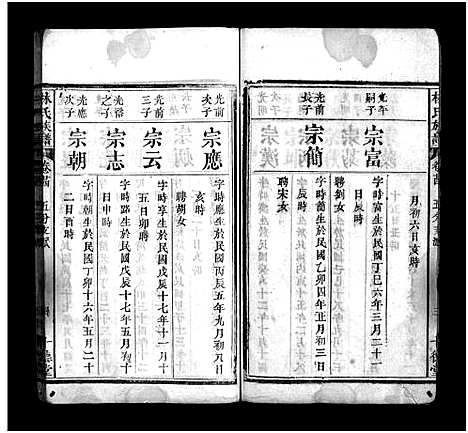 林氏族譜
卷
月初六日亥時
光午嗣子
宗富
字時富生於民國丁巳六年三月二十一
日辰時
聘劉女
光前長子
宗簡
字時簡生於民國乙卯四年正月初三日
辰時
聘宋女
光前次子
宗應
字時應生於民國丙辰五年九月初九日
亥時
聘胡女
光應三子
宗云
字時享生於民國戊辰十七年十一月初
五日卯時
光裕之子
宗志
字時路生於民國戊辰十七年五月十
日申時
光應次子
宗朝
字時當生於民國丁卯十六年五月二十
二日酉時
林氏族譜
卷
五分支派
十德堂